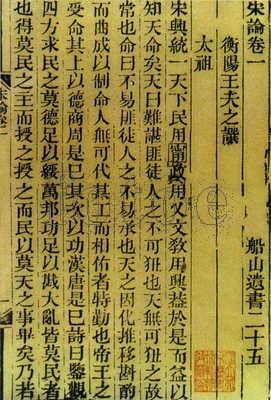 宋論卷一
船山遺書二十五
衡陽王夫之譔
太祖
宋興統一天下民用甯政用乂文教用興蓋於是而益以
知天命矣天曰難諶匪徒人之不可狃也天無可狃之故
常也命曰不易匪徒人之不易承也天之因化推移斟酌
而曲成以制命人無可代其工而相佑者特勤也帝王之
受命其上以德商周是已其次以功漢唐是已詩曰鑒觀
四方求民之莫德足以綏萬邦功足以戡大亂皆莫民者
也得莫民之主而授之授之而民以莫天之事畢矣乃若
宋論卷一